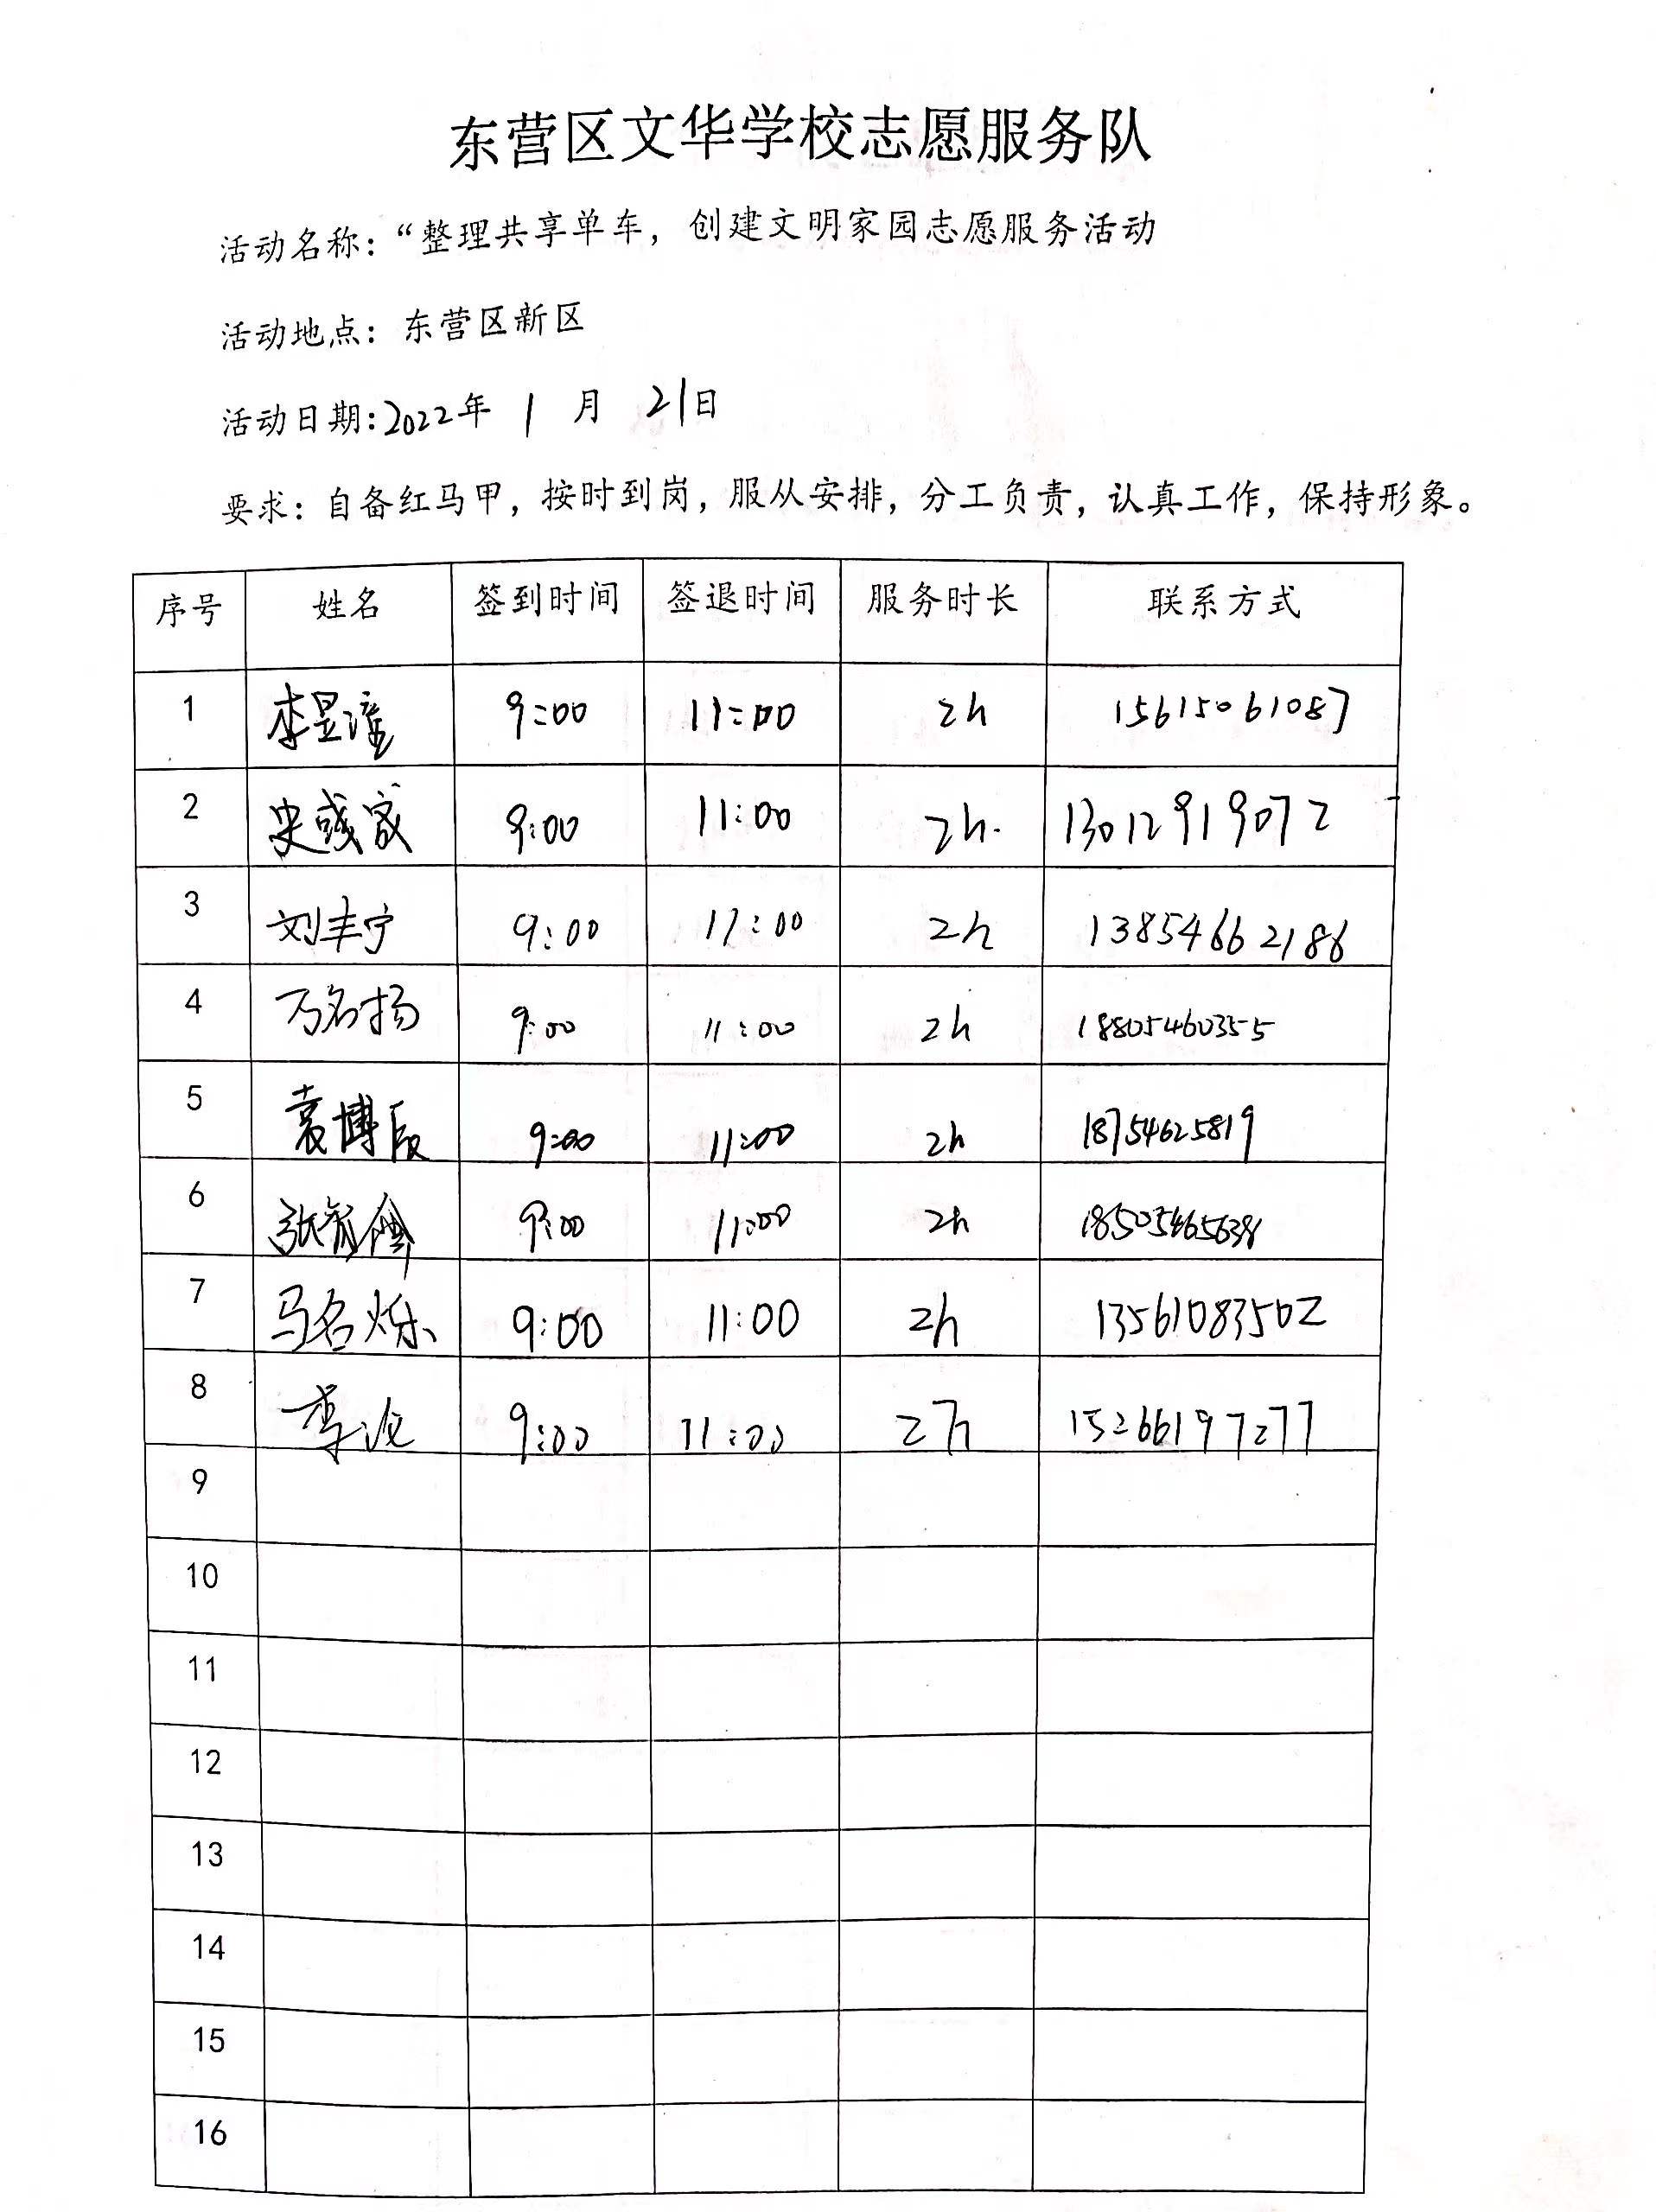 东营区文华学校志愿服务队
活动名称：“整理共享单车，创建文明家园志愿服务活动
活动地点：东营区新区
活动日期:2022年 1 月 21日
要求：自备红马甲，按时到岗，服从安排，分工负责，认真工作，保持形象。
序号 姓名 签到时间 签退时间 服务时长 联系方式
1 李昱潼 9:00 11:00 2h 15615061087
2 9:00 11:00 2h. 13012919072
3 刘丰宁 9:00 11:00 2h 13854662186
4 万名扬 9:00 11:00 2h 18805460355
5 袁博辰 9:00 11:00 2h 18754625819
6 9:00 11:00 2h
7 马名烁 9:00 11:00 2h 13561083502
8 李 9:00 11:00 2h 15266197277
9
10
11
12
13
14
15
16